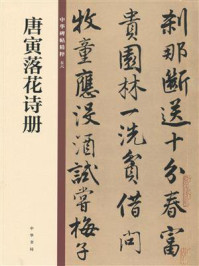 中华碑帖精粹
唐寅落花诗册
中华书局
刹那断送十分春富
貴園林一洗貧借問
牧童應没酒試嘗梅子